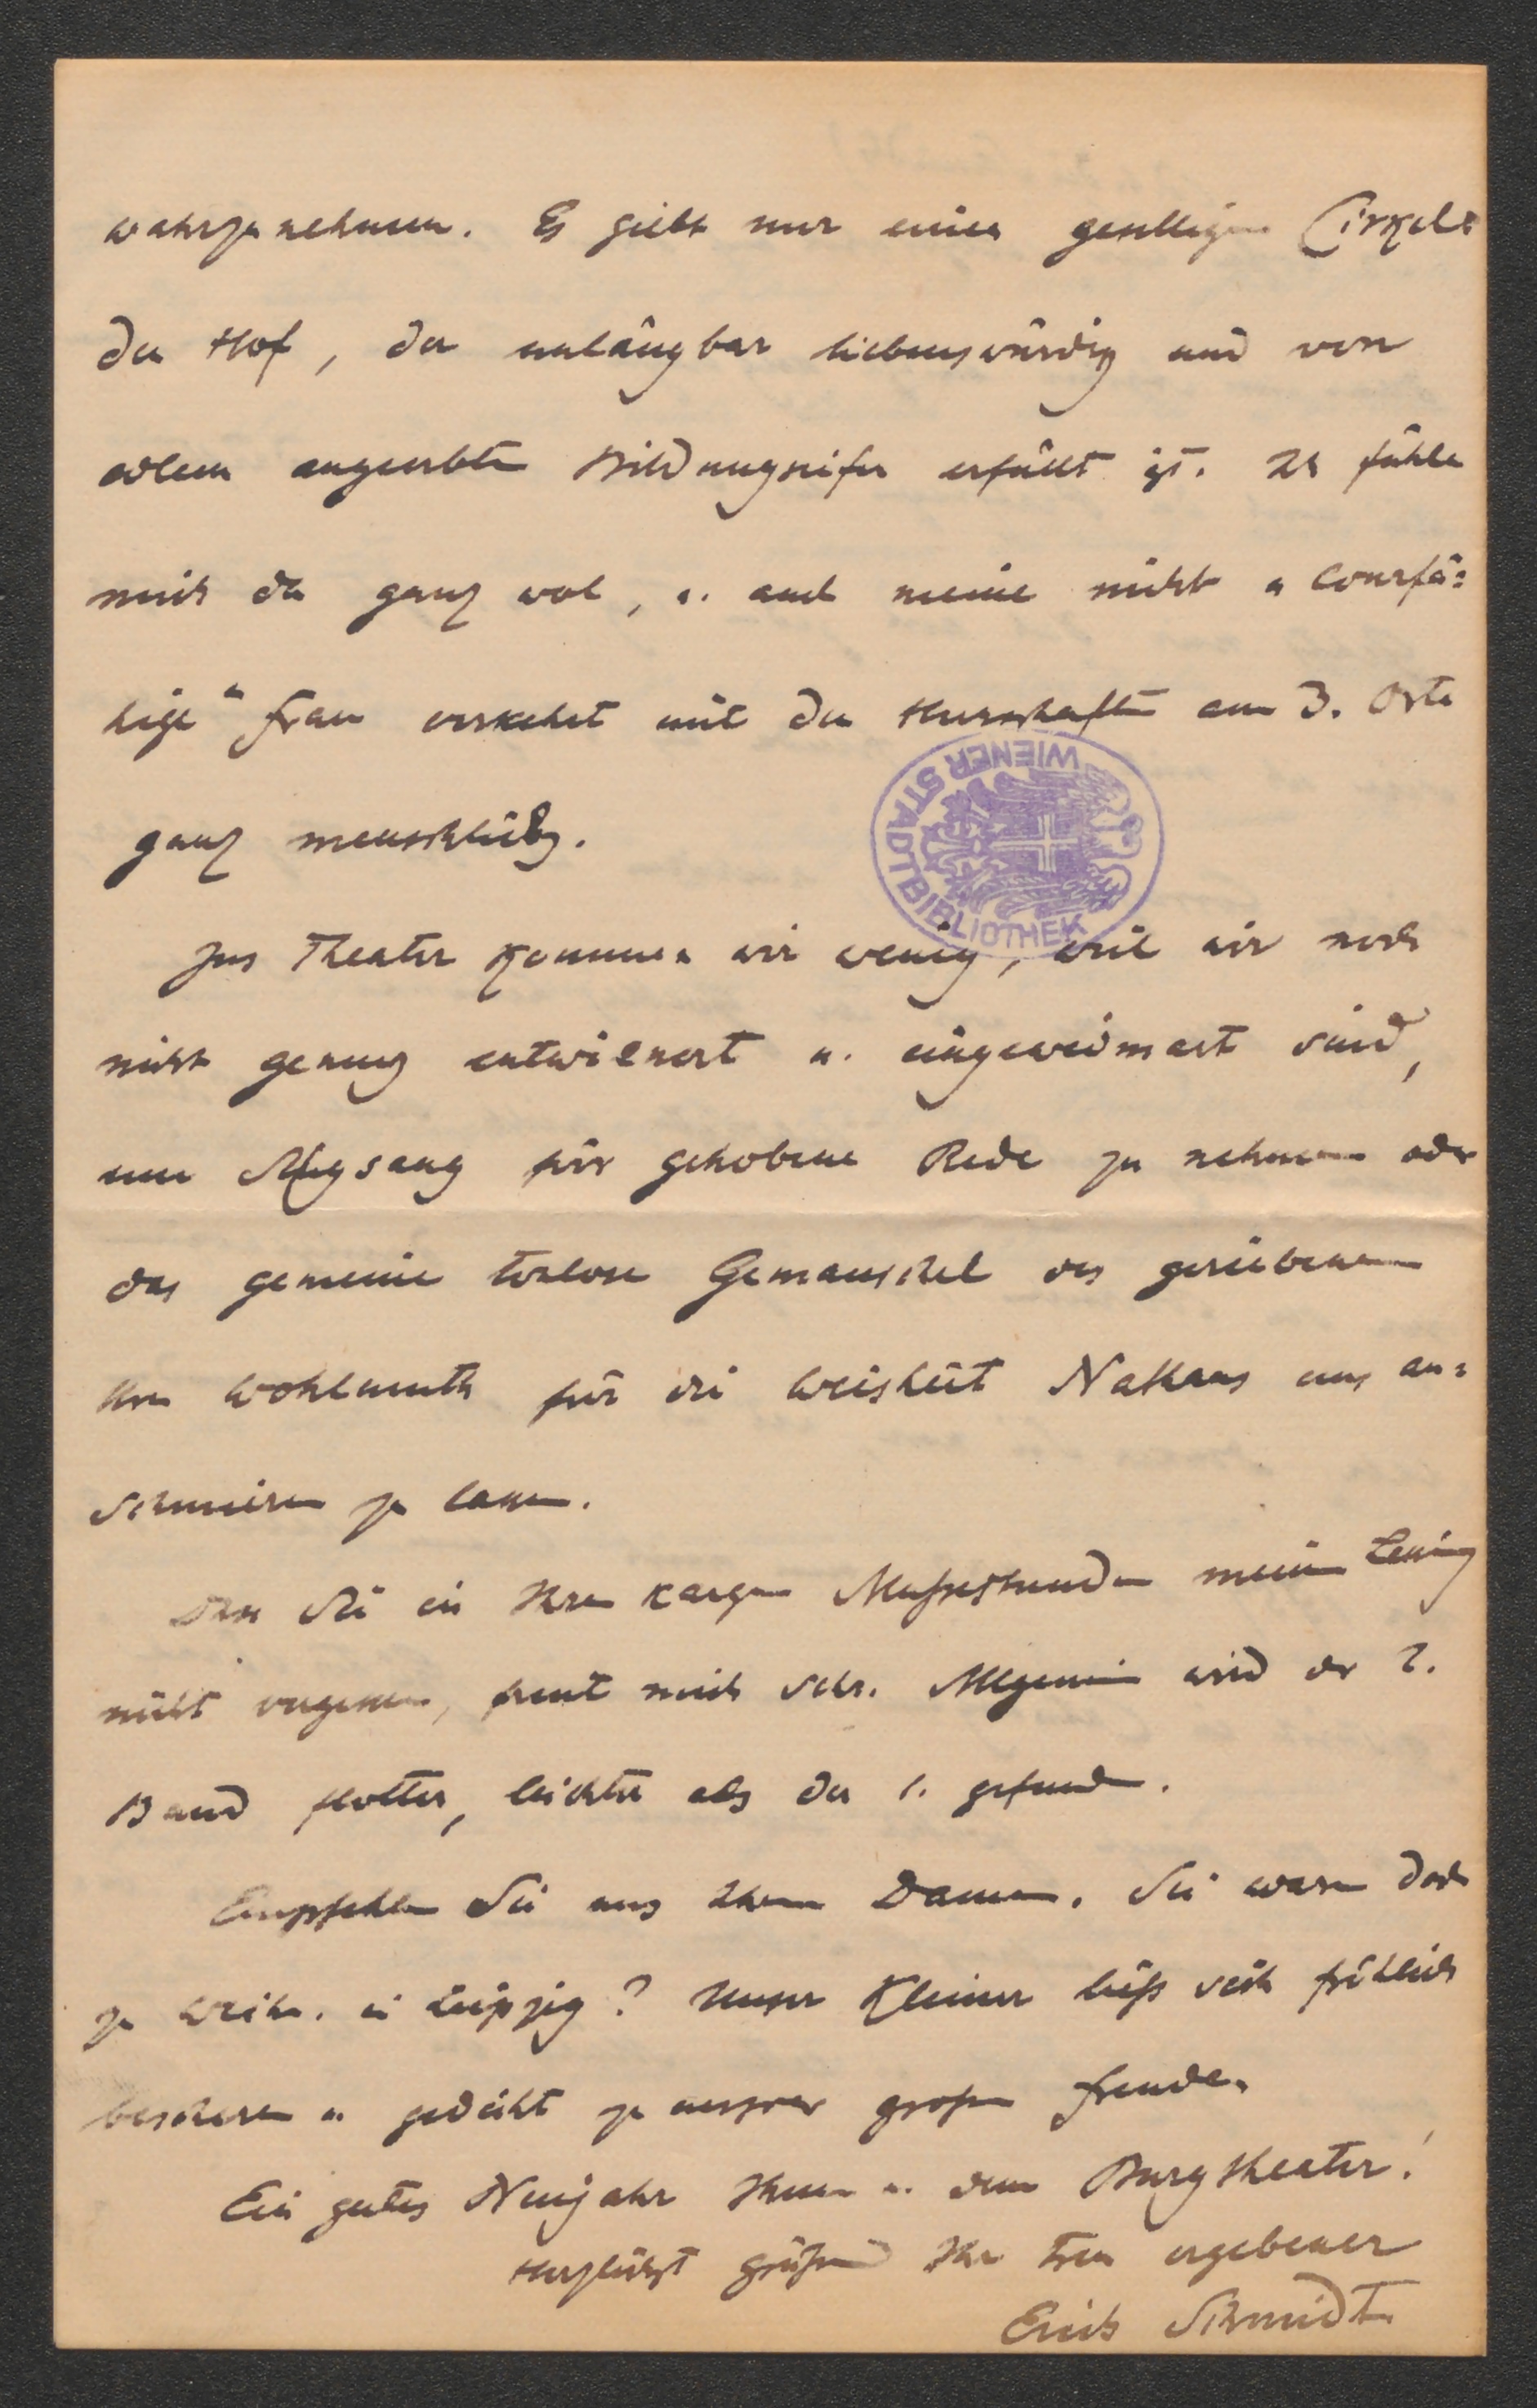 wahrzunehmen. Es giebt nur einen geselligen Cirkel:
der Hof, der unläugbar liebenswürdig und von
edlem angeerbten Bildungseifer erfüllt ist. Ich fühle
mich da ganz wol, u. auch meine nicht „courfä=
hige“ Frau verkehrt mit den Herrschaften am 3. Orte
ganz menschlich.
WIENER STADTBIBLIOTHEK
Ins Theater kommen wir wenig, weil wir noch
nicht genug entwienert u. eingeweimart sind,
um Singsang für gehobene Rede zu nehmen oder
das gemeine tonlose Gemauschel des geriebenen
Hrn Wohlmuth für die Weisheit Nathans uns an=
schmieren zu lassen.
Dass Sie in Ihren kargen Mußestunden meinen Lessing
nicht vergessen, freut mich sehr. Allgemein wird der 2.
Band flotter, leichter als der 1. gefunden.
Empfehlen Sie uns Ihren Damen. Sie waren doch
zu Weihn. in Leipzig? Unser Kleiner ließ sich fröhlich
bescheren u. gedeiht zu unsrer großen Freude.
Ein gutes Neujahr Ihnen u. dem Burgtheater!
Herzlichst grüßend Ihr treu ergebener
Erich Schmidt